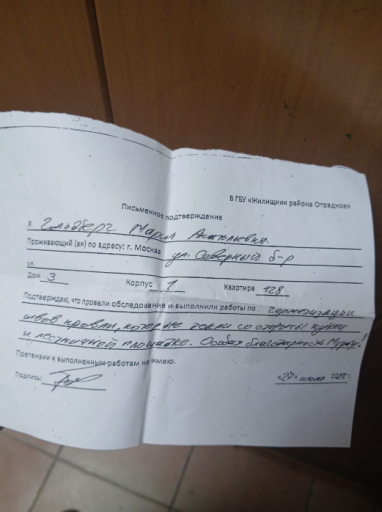 В ГБУ «Жилищник района Отрадное»
Письменное подтверждение
Я Гольдберг Мария Анатольевна
Проживающий (ая) по адресу: г. Москва ул. Северный б-р
ул.
Дом 3 Корпус 1 Квартире 128
Подтверждаю, что провели обследование и выполнили работы по герметизации
швов кровли, которые текли со стороны кухни
и лестничной площадке. Особая благодарность !
Претензии к выполненным работам не имею.
Подпись:
«27» июня